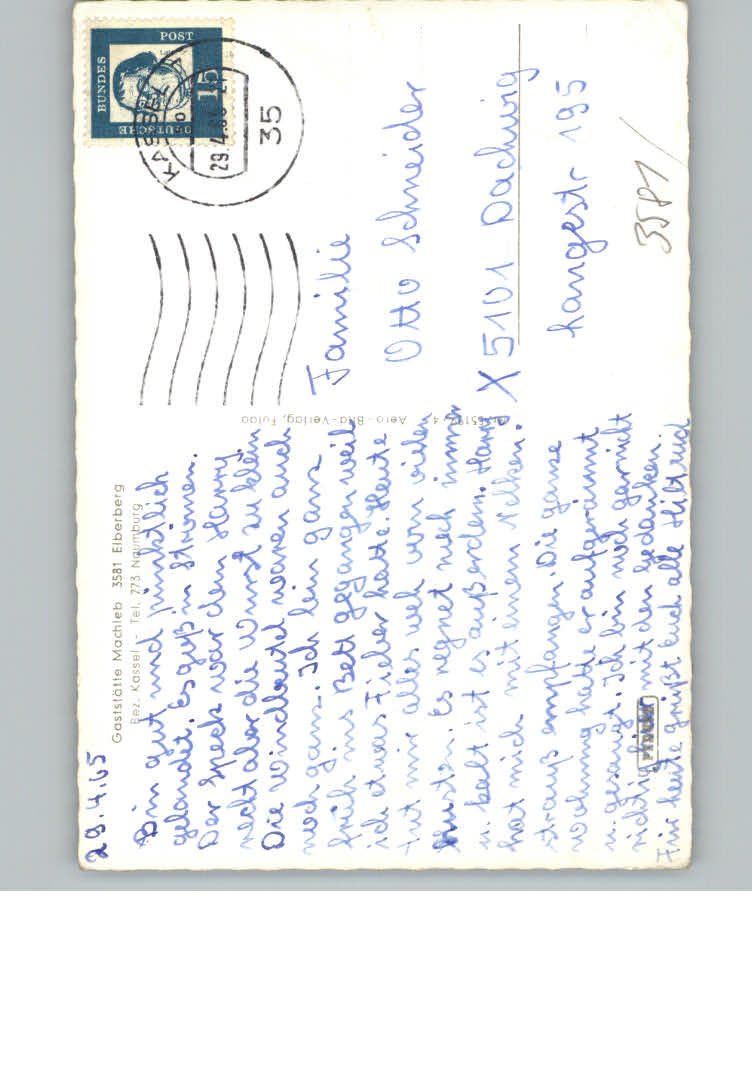 29.4.65
Gaststätte Machleb 3581 Elberberg
Bez. Kassel - Tel. 773 Naumburg
Bin gut und pünktlich
gelandet. Es gyß in Strömen.
Der Speck war dem Hanny
recht aber die Wurst zu klein
Die Windbeutel waren auch
noch ganz. Ich bin ganz
früh ins Bett gegangen weil
ich etwas Fieber hatte. Heute
tut mir alles weh vom vielen
husten. Es regnet noch immer
u. kalt ist es außerdem. Hann
hat mich mit einem Nelken-
strauß empfangen. Die ganze
wohnung hatte er aufgeräumt
u. gesaugt. Ich bin noch gar nicht
richtig hier mit den Gedanken.
Für heute grüßt Euch alle Hilt und
Aero-Bild-Verlag, Fulda
DEUTSCHE
BUNDES
POST
15
KASSEL
29.4.65
35
Familie
Otto Schneider
X 5101 Dachwig
Langestr 195
3581/